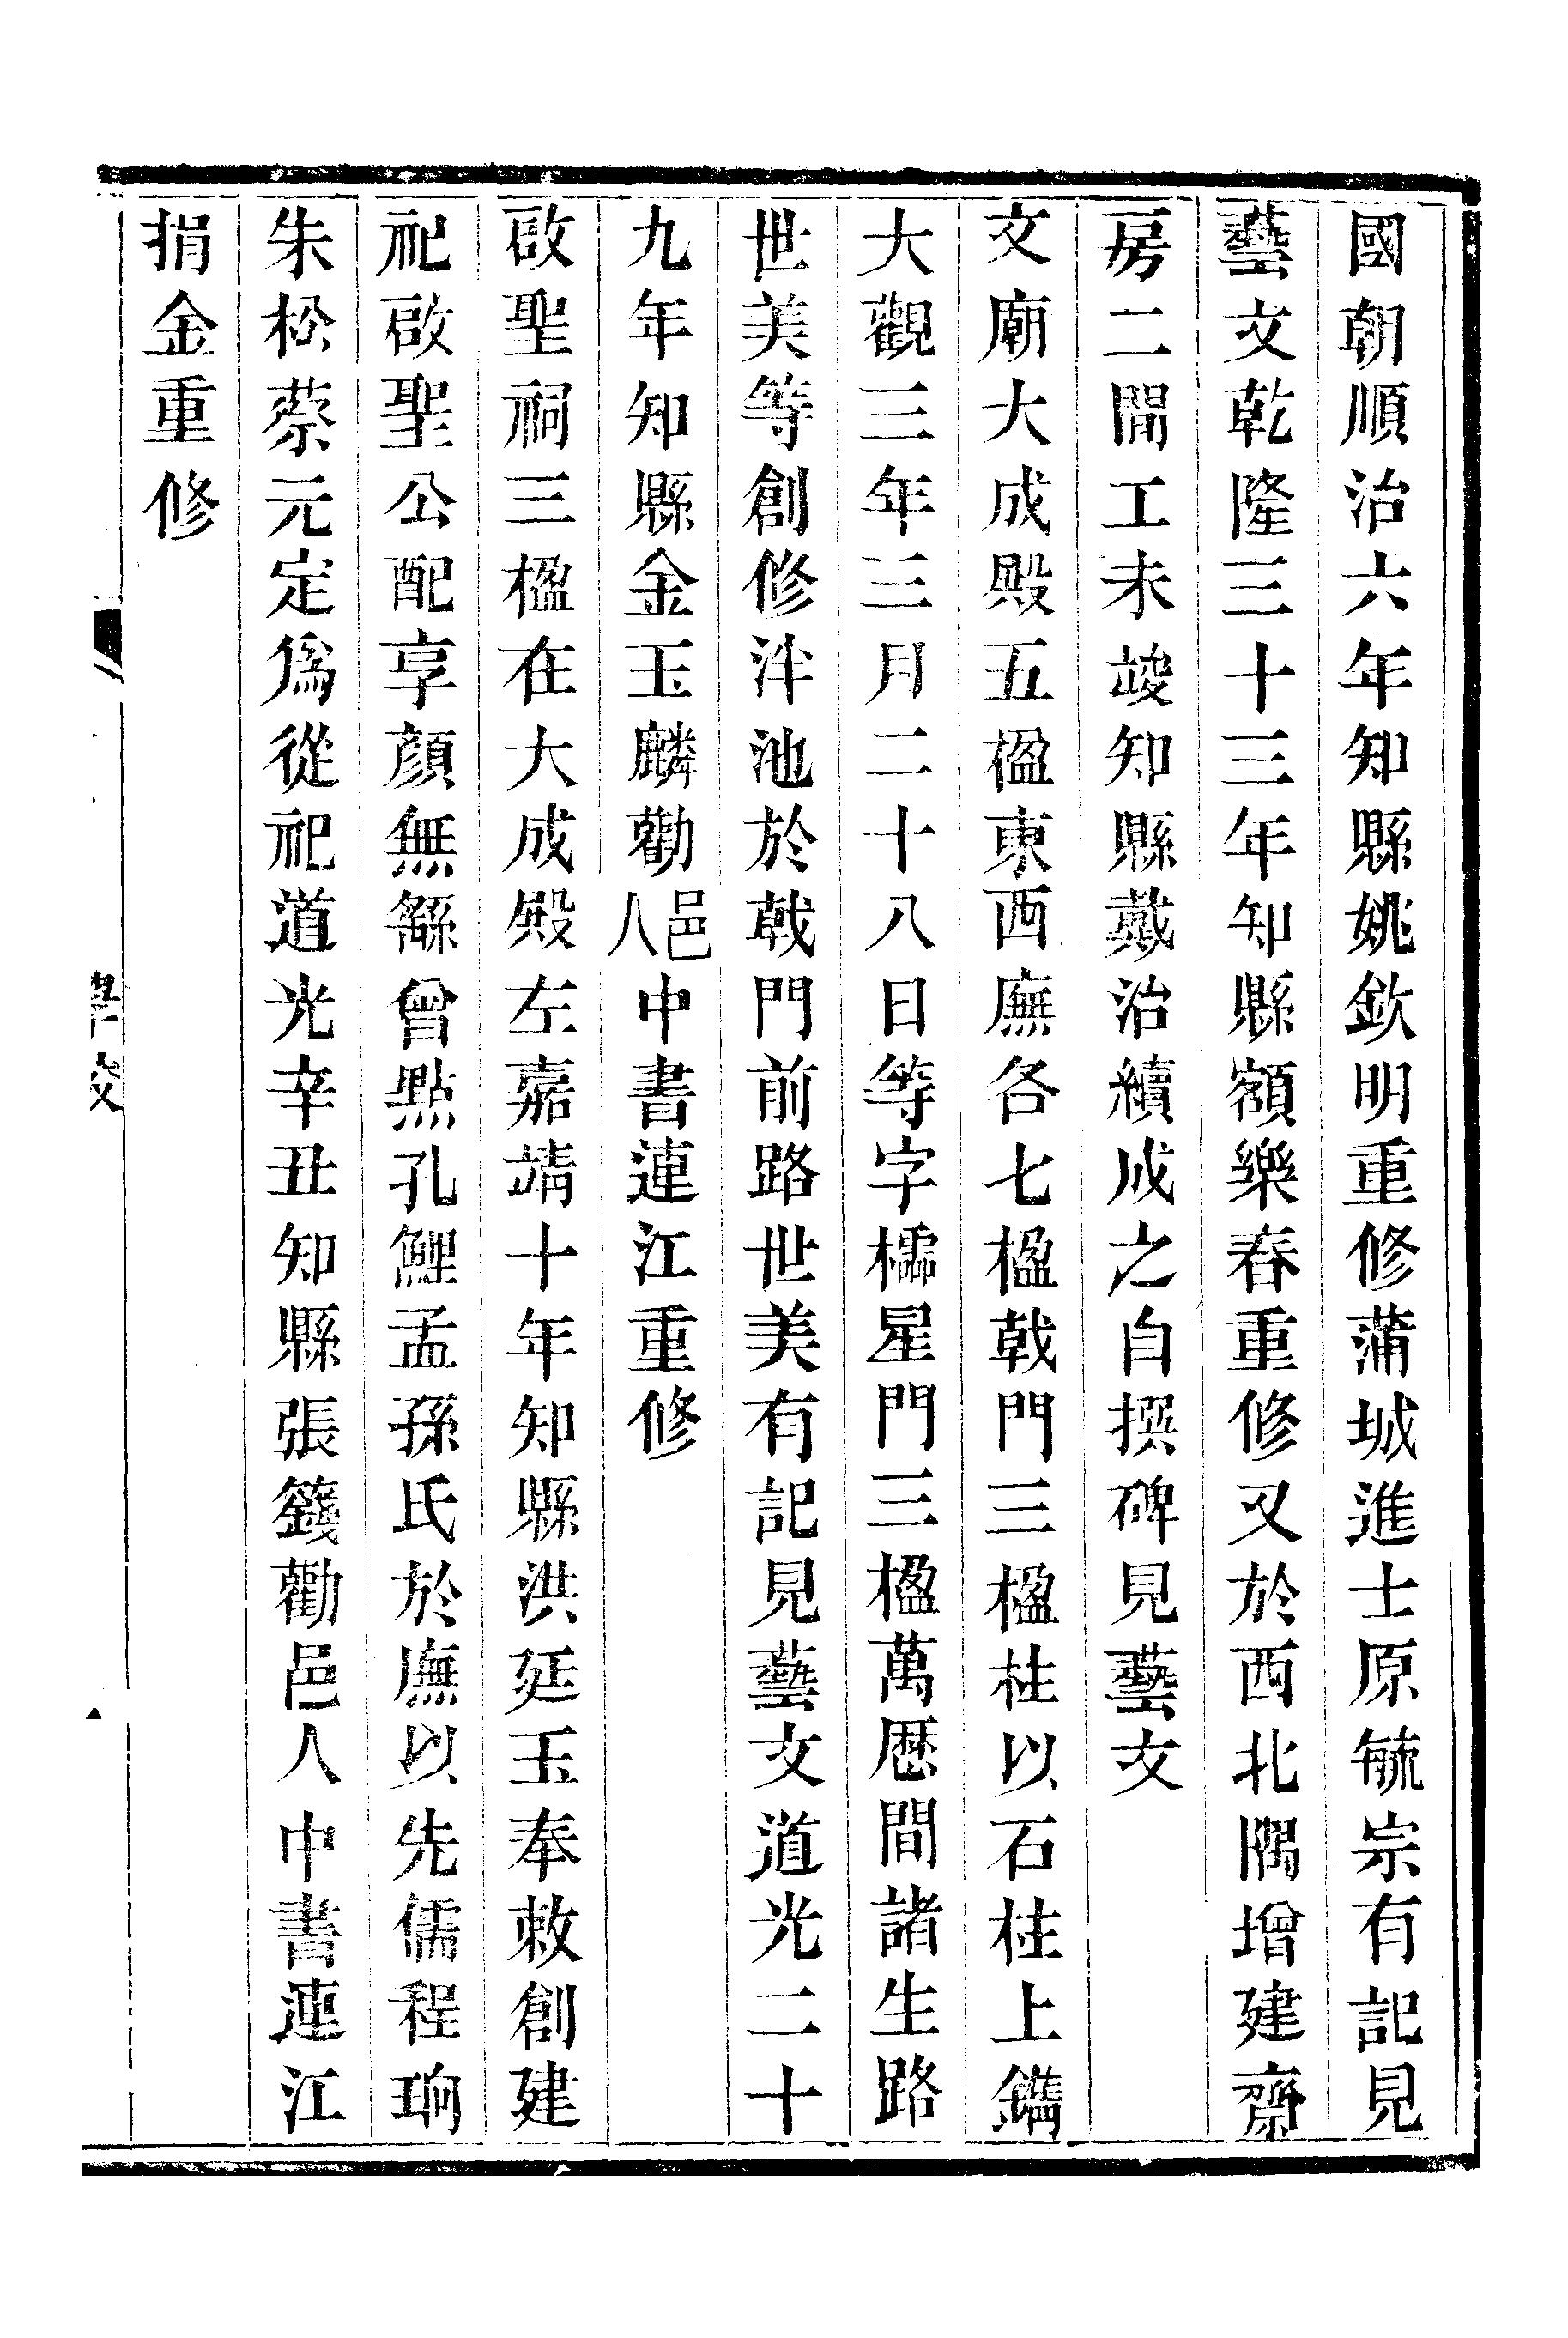 國朝順治六年知縣姚欽明重修蒲城進士原毓宗有記見
藝文乾隆三十三年知縣額樂春重修又於西北隅增建齋
房二間工未竣知縣戴治續成之自撰碑見藝文
文廟大成殿五楹東西廡各七楹戟門三楹柱以石柱上鐫
大觀三年三月二十八日等字櫺星門三楹萬厯間諸生路
世美等創修泮池於戟門前路世美有記見藝文道光二十
九年知縣金玉麟勸邑人中書連江重修
啟聖祠三楹在大成殿左嘉靖十年知縣洪廷玉奉敕創建
祀啟聖公配享顏無繇曾點孔鯉孟孫氏於廡以先儒程珦
朱松蔡元定爲從祀道光辛丑知縣張籛勸邑人中書連江
捐金重修
學校